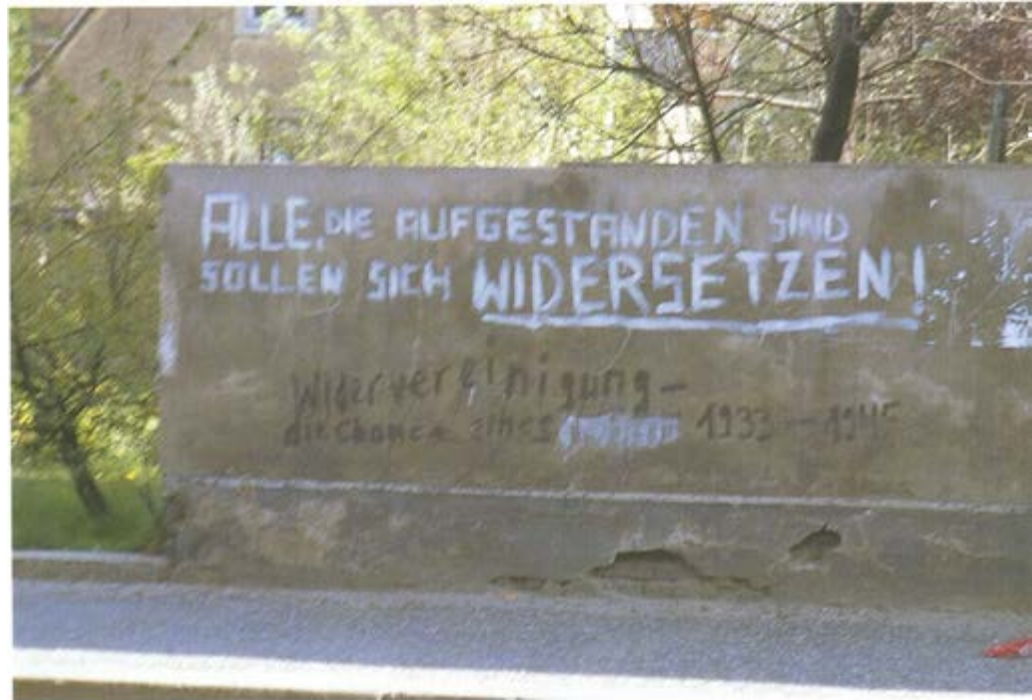 ALLE, DIE AUFGESTANDEN SIND
SOLLEN SICH WIDERSETZEN!
Widervereinigung –
die Chance eines 1933 – 1945